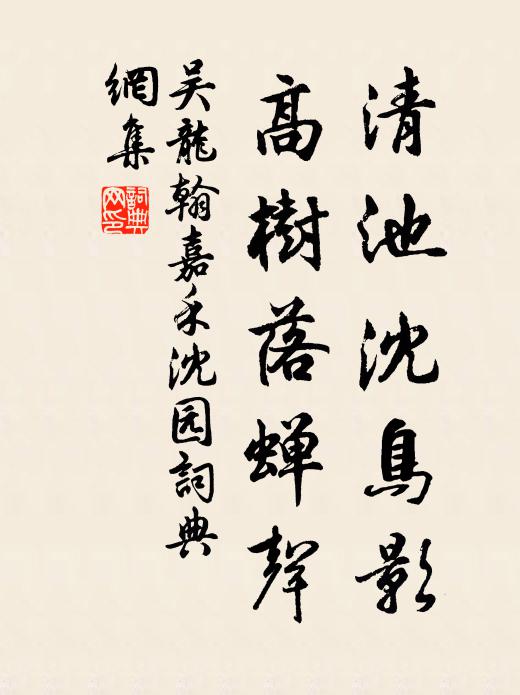 清池沈鳥影
高樹落蟬聲
吴龍翰嘉禾沈园詞典
網集
詞典
网印